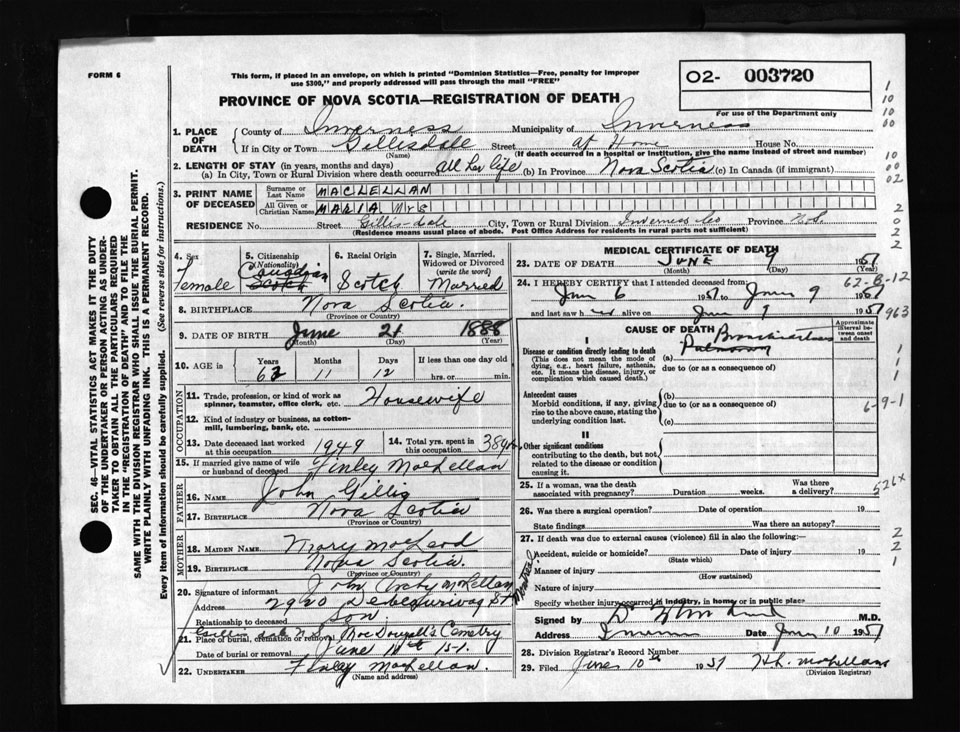 FORM 6
This form, if placed in an envelope, on which is printed "Dominion Statistics—Free, penalty for improper
use $300," and properly addressed will pass through the mail "FREE"
O2- 003720
For use of the Department only
PROVINCE OF NOVA SCOTIA—REGISTRATION OF DEATH
1. PLACE OF DEATH
County of Inverness Municipality of Inverness
If in City or Town Gillisdale Street at Home House No.
(Name) (If death occurred in a hospital or institution, give the name instead of street and number)
2. LENGTH OF STAY (in years, months and days)
(a) In City, Town or Rural Division where death occurred all her life (b) In Province Nova Scotia (c) In Canada (if immigrant)
3. PRINT NAME OF DECEASED
Surname or Last Name MACLELLAN
All Given or Christian Names MARIA Mrs
RESIDENCE No. Street Gillisdale City, Town or Rural Division Inverness Co Province N.S.
(Residence means usual place of abode. Post Office Address for residents in rural parts not sufficient)
4. Sex Female
5. Citizenship (Nationality) Canadian Scotch
6. Racial Origin Scotch
7. Single, Married, Widowed or Divorced (write the word) Married
8. BIRTHPLACE Nova Scotia.
(Province or Country)
9. DATE OF BIRTH June 21 1888
(Month) (Day) (Year)
10. AGE Years Months Days If less than one day old
62 11 12 hrs. or min.
OCCUPATION
11. Trade, profession, or kind of work as spinner, teamster, office clerk, etc. Housewife
12. Kind of industry or business, as cotton-mill, lumbering, bank, etc.
13. Date deceased last worked at this occupation 1949
14. Total yrs. spent in this occupation 38
15. If married give name of wife or husband of deceased Finley MacLellan
FATHER
16. NAME John Gillis
17. BIRTHPLACE Nova Scotia
(Province or Country)
MOTHER
18. MAIDEN NAME Mary MacLeod
19. BIRTHPLACE Nova Scotia.
(Province or Country)
20. Signature of informant John Archy McLellan
Address 2920 St Montreal
Relationship to deceased son
21. Place of burial, cremation or removal Gillisdale N.S. MacDougall's Cemetry
Date of burial or removal June 51.
22. UNDERTAKER Finley MacLellan.
(Name and address)
MEDICAL CERTIFICATE OF DEATH
23. DATE OF DEATH JUNE 9 1951
(Month) (Day) (Year)
24. I HEREBY CERTIFY that I attended deceased from:
June 6 1951 to June 9 1951
and last saw her alive on June 9 1951
CAUSE OF DEATH
Approximate interval between onset and death
I
Disease or condition directly leading to death
(This does not mean the mode of dying, e.g., heart failure, asthenia, etc. It means the disease, injury, or complication which caused death.)
(a) Pulmonary
due to (or as a consequence of)
Antecedent causes
Morbid conditions, if any, giving rise to the above cause, stating the underlying condition last.
(b)
due to (or as a consequence of)
(c)
II
Other significant conditions
contributing to the death, but not related to the disease or condition causing it.
25. If a woman, was the death associated with pregnancy? Duration weeks. Was there a delivery?
26. Was there a surgical operation? Date of operation 19
State findings Was there an autopsy?
27. If death was due to external causes (violence) fill in also the following:—
Accident, suicide or homicide? Date of injury 19
(State which)
Manner of injury
(How sustained)
Nature of injury
Specify whether injury occurred in industry, in home or in public place
Signed by Dr M.D.
Address Inverness Date June 10 1951
28. Division Registrar's Record Number
29. Filed June 10th 1951 MacLellan
(Division Registrar)
62-B-12
963
6-9-1
526x
SEC. 46—VITAL STATISTICS ACT MAKES IT THE DUTY
OF THE UNDERTAKER OR PERSON ACTING AS UNDER-
TAKER TO OBTAIN ALL THE PARTICULARS REQUIRED
IN THE "REGISTRATION OF DEATH" AND TO FILE THE
SAME WITH THE DIVISION REGISTRAR WHO SHALL ISSUE THE BURIAL PERMIT.
WRITE PLAINLY WITH UNFADING INK. THIS IS A PERMANENT RECORD.
Every item of information should be carefully supplied. (See reverse side for instructions.)